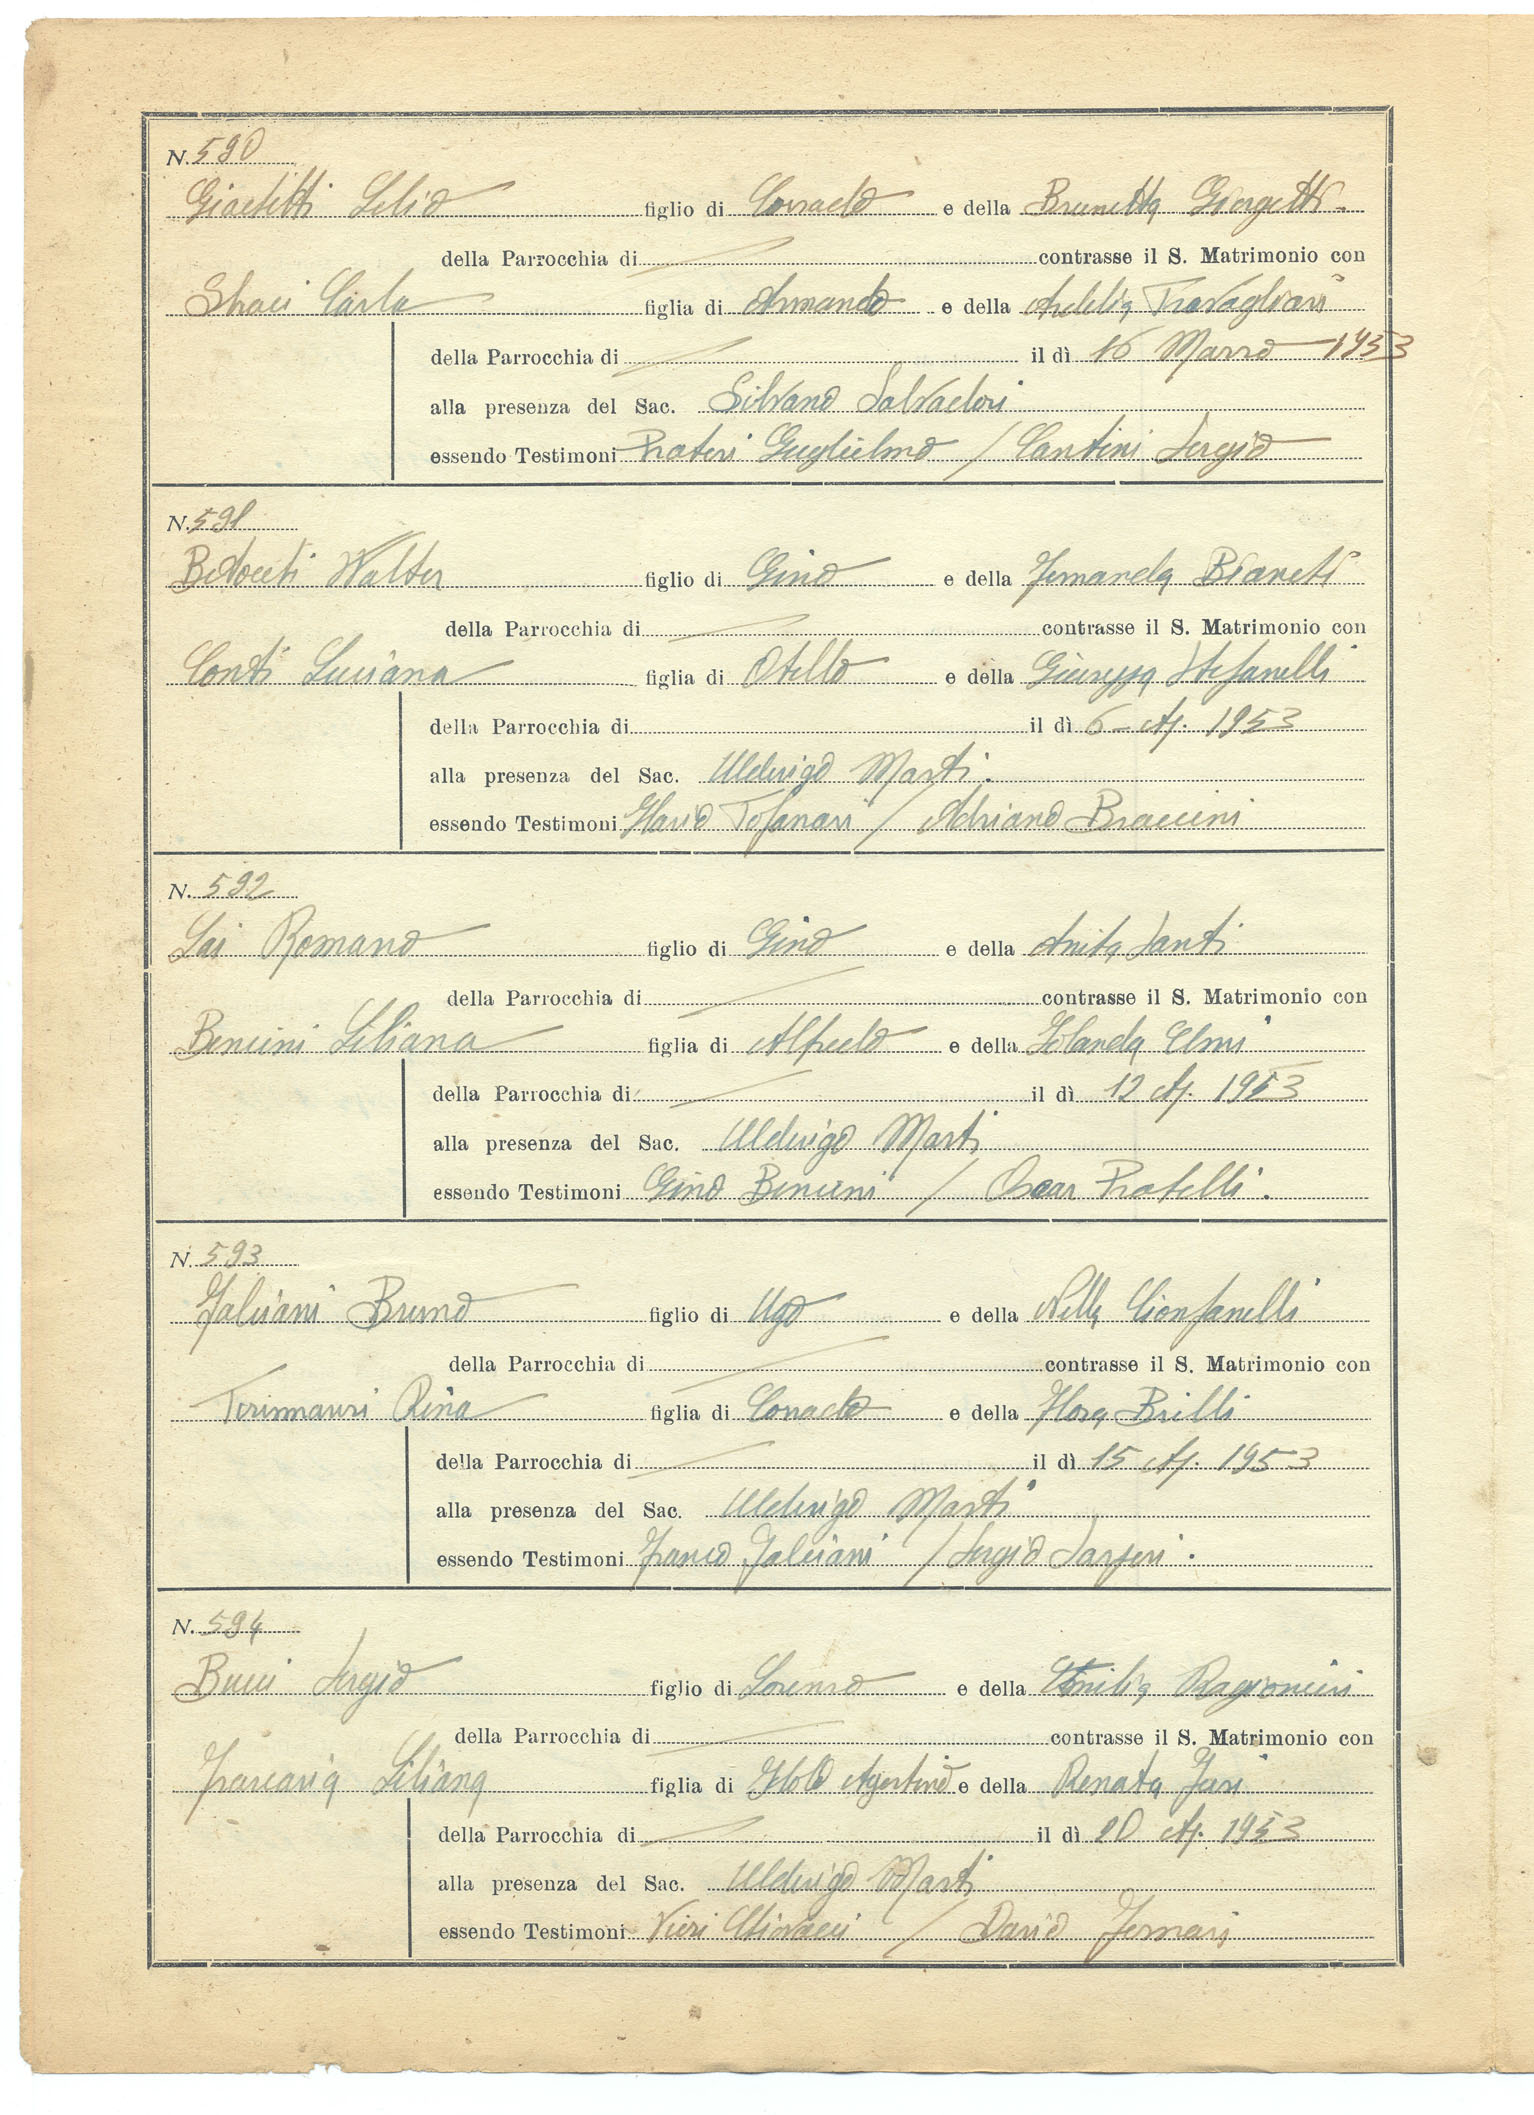 N. 590
Giachetti Lelio figlio di Corrado e della Brunetta Giorgetti.
della Parrocchia di contrasse il S. Matrimonio con
Carla figlia di Armando e della Adelia Travagliani
della Parrocchia di il dì 16 Marzo 1953
alla presenza del Sac. Silvano Salvadori
essendo Testimoni Pratesi Guglielmo / Cantini Sergio
N. 591
Walter figlio di Gino e della Fernanda
della Parrocchia di contrasse il S. Matrimonio con
Conti Luciana figlia di Otello e della Giuseppa Stefanelli
della Parrocchia di il dì 6 - Ap. 1953
alla presenza del Sac. Ulderigo Marti.
essendo Testimoni Ilario Tofanari / Adriano Braccini
N. 592
Lai Romano figlio di Gino e della Anita Santi
della Parrocchia di contrasse il S. Matrimonio con
Bencini Liliana figlia di Alfredo e della Iolanda Elmi
della Parrocchia di il dì 12 Ap. 1953
alla presenza del Sac. Ulderigo Marti
essendo Testimoni Gino Bencini / Oscar Pratelli.
N. 593
Falciani Bruno figlio di Ugo e della Nella Cionfanelli
della Parrocchia di contrasse il S. Matrimonio con
Rina figlia di Corrado e della Flora Brilli
della Parrocchia di il dì 15 Ap. 1953
alla presenza del Sac. Ulderigo Marti
essendo Testimoni Franco Falciani / Sergio
N. 594
Bucci Sergio figlio di Lorenzo e della Emilia Ragionieri
della Parrocchia di contrasse il S. Matrimonio con
Liliana figlia di Agostino e della Renata
della Parrocchia di il dì 20 Ap. 1953
alla presenza del Sac. Ulderigo Marti
essendo Testimoni Vieri / Dario